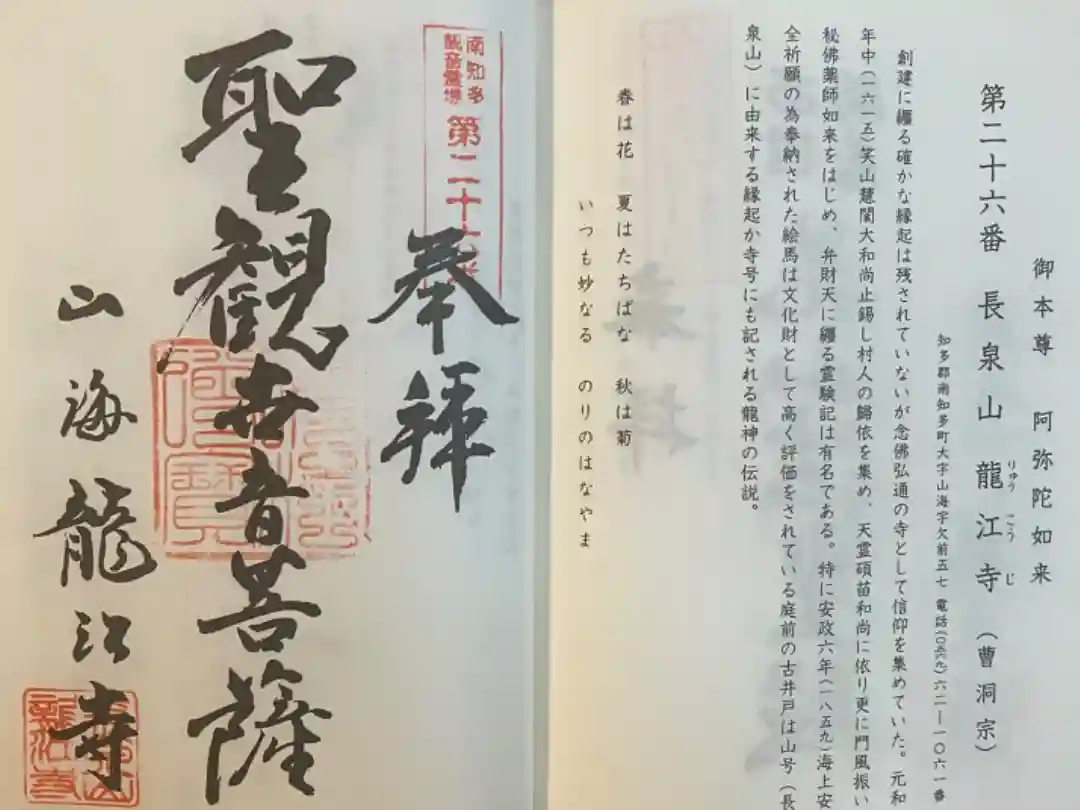 御本尊 阿弥陀如来
第二十六番 長泉山 龍江寺(曹洞宗)
りゅう こう じ
知多郡南知多町大字山海字欠前五七 電話(〇五六九)六二―一〇六一番
創建に纒る確かな縁起は残されていないが念佛弘通の寺として信仰を集めていた。元和
年中(一六一五)笑山慧誾大和尚止錫し村人の歸依を集め、天霊碩苗和尚に依り更に門風振い
秘佛薬師如来をはじめ、弁財天に纒る霊験記は有名である。特に安政六年(一八五九)海上安
全祈願の為奉納された絵馬は文化財として高く評価をされている庭前の古井戸は山号(長
泉山)に由来する縁起か寺号にも記される龍神の伝説。
春は花 夏はたちばな 秋は菊
いつも妙なる のりのはなやま
南知多
観音霊場
第二十六
奉拝
聖観世音菩薩
山海龍江寺